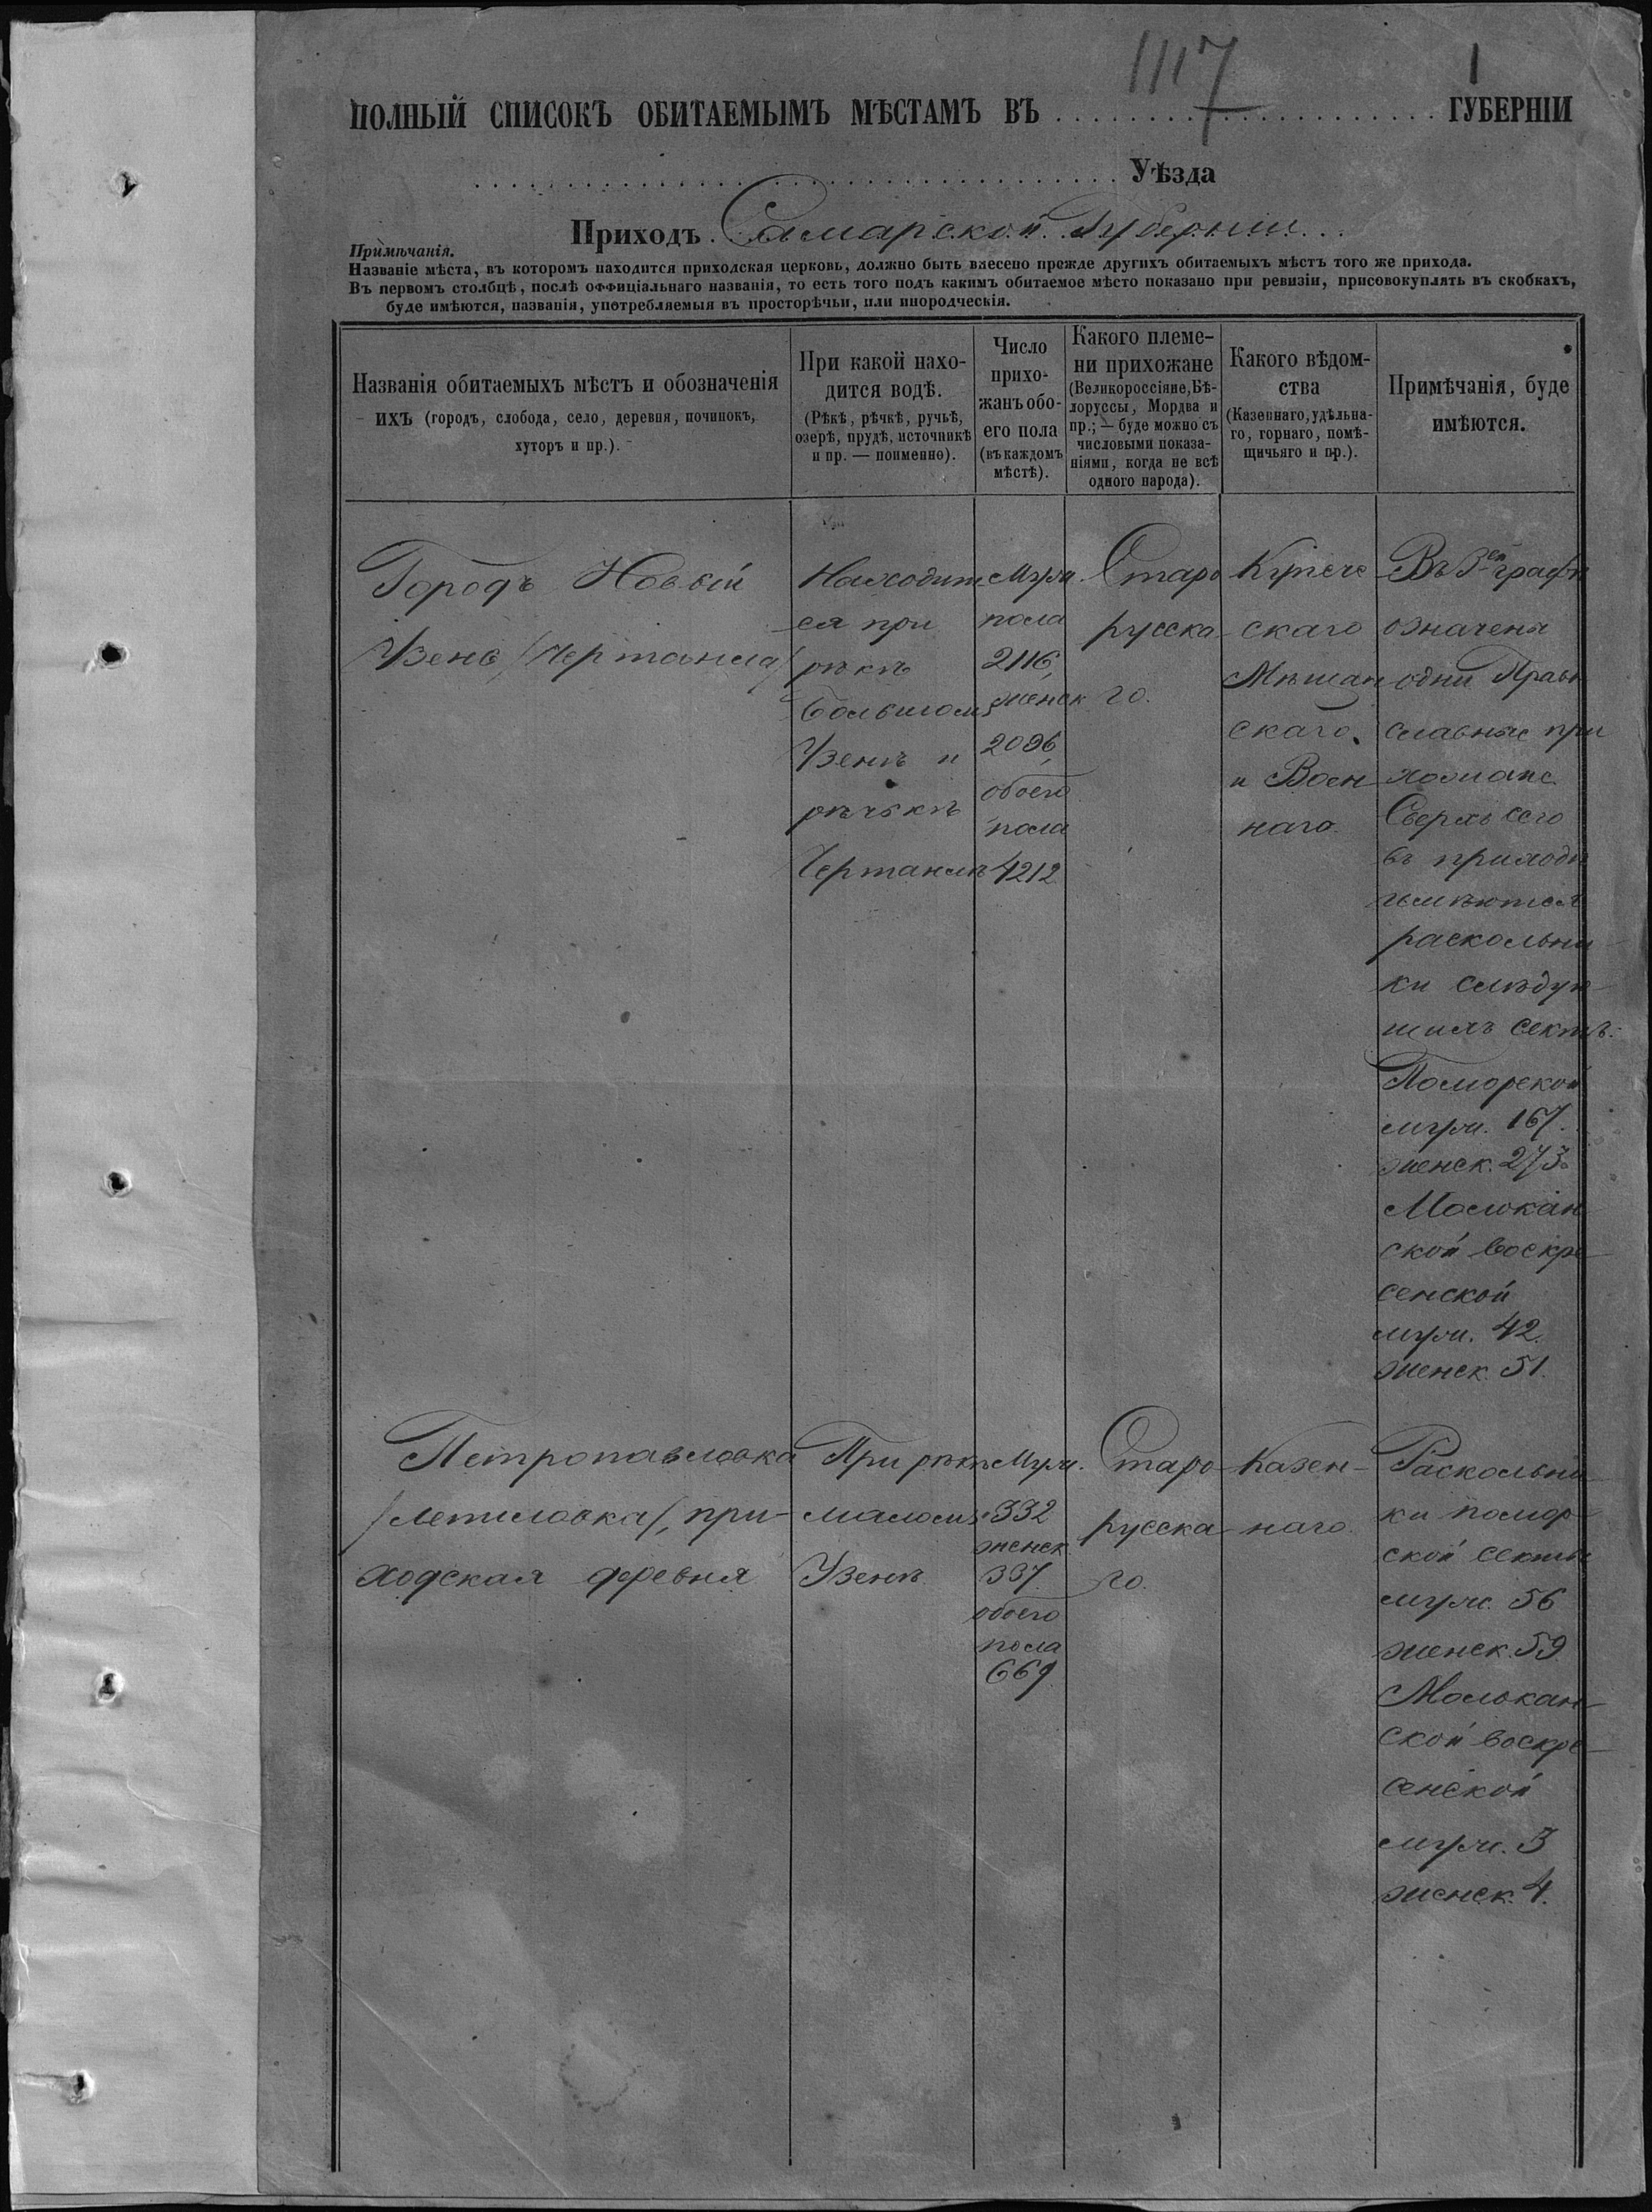 1117
1
ПОЛНЫЙ СПИСОКЪ ОБИТАЕМЫМЪ МѢСТАМЪ ВЪ ГУБЕРНІИ
Уѣзда
Приходъ Самарской Губерніи
Примѣчанія.
Названіе мѣста, въ которомъ находится приходская церковь, должно быть внесено прежде другихъ обитаемыхъ мѣстъ того же прихода.
Въ первомъ столбцѣ, послѣ оффиціальнаго названія, то есть того подъ какимъ обитаемое мѣсто показано при ревизіи, присовокуплять въ скобкахъ,
буде имѣются, названія, употребляемыя въ просторѣчьи, или инородческія.
Названія обитаемыхъ мѣстъ и обозначенія
ихъ (городъ, слобода, село, деревня, починокъ,
хуторъ и пр.).
При какой нахо-
дится водѣ.
(Рѣкѣ, рѣчкѣ, ручьѣ,
озерѣ, прудѣ, источникѣ
и пр. — поименно).
Число
прихо-
жанъ обо-
его пола
(въ каждомъ
мѣстѣ).
Какого племе-
ни прихожане
(Великороссіяне, Бѣ-
лоруссы, Мордва и
пр.; — буде можно съ
числовыми показа-
ніями, когда не всѣ
одного народа).
Какого вѣдом-
ства
(Казеннаго, удѣльна-
го, горнаго, помѣ-
щичьяго и пр.).
Примѣчанія, буде
имѣются.
Городъ Новый
Узень /Чертанла/
Находит
ся при
рѣкѣ
Большомъ
Узенѣ и
рѣчькѣ
Чертанлѣ
Муж.
пола
2116,
женск
2096,
обоего
пола
4212
Старо
русска
го.
Купече
скаго
Мѣщан
скаго.
и Воен
наго.
Въ 3ей графѣ
означены
одни Право
славные при
хожане.
Сверхъ сего
въ приходѣ
имѣются
раскольни-
ки слѣдую-
щихъ сектъ:
Поморской
муж. 167.
женск. 273.
Молокан
ской воскре-
сенской
муж. 42.
женск. 51.
Петропавловка
/Летиловка/, при-
ходская деревня
При рѣкѣ
маломъ
Узенѣ
Муж.
332
женск
337.
обоего
пола
669.
Старо-
русска
го.
Казен-
наго.
Раскольни-
ки помор-
ской секты
муж. 56
женск. 59.
Молокан-
ской воскре-
сенской
муж. 3
женск. 4.